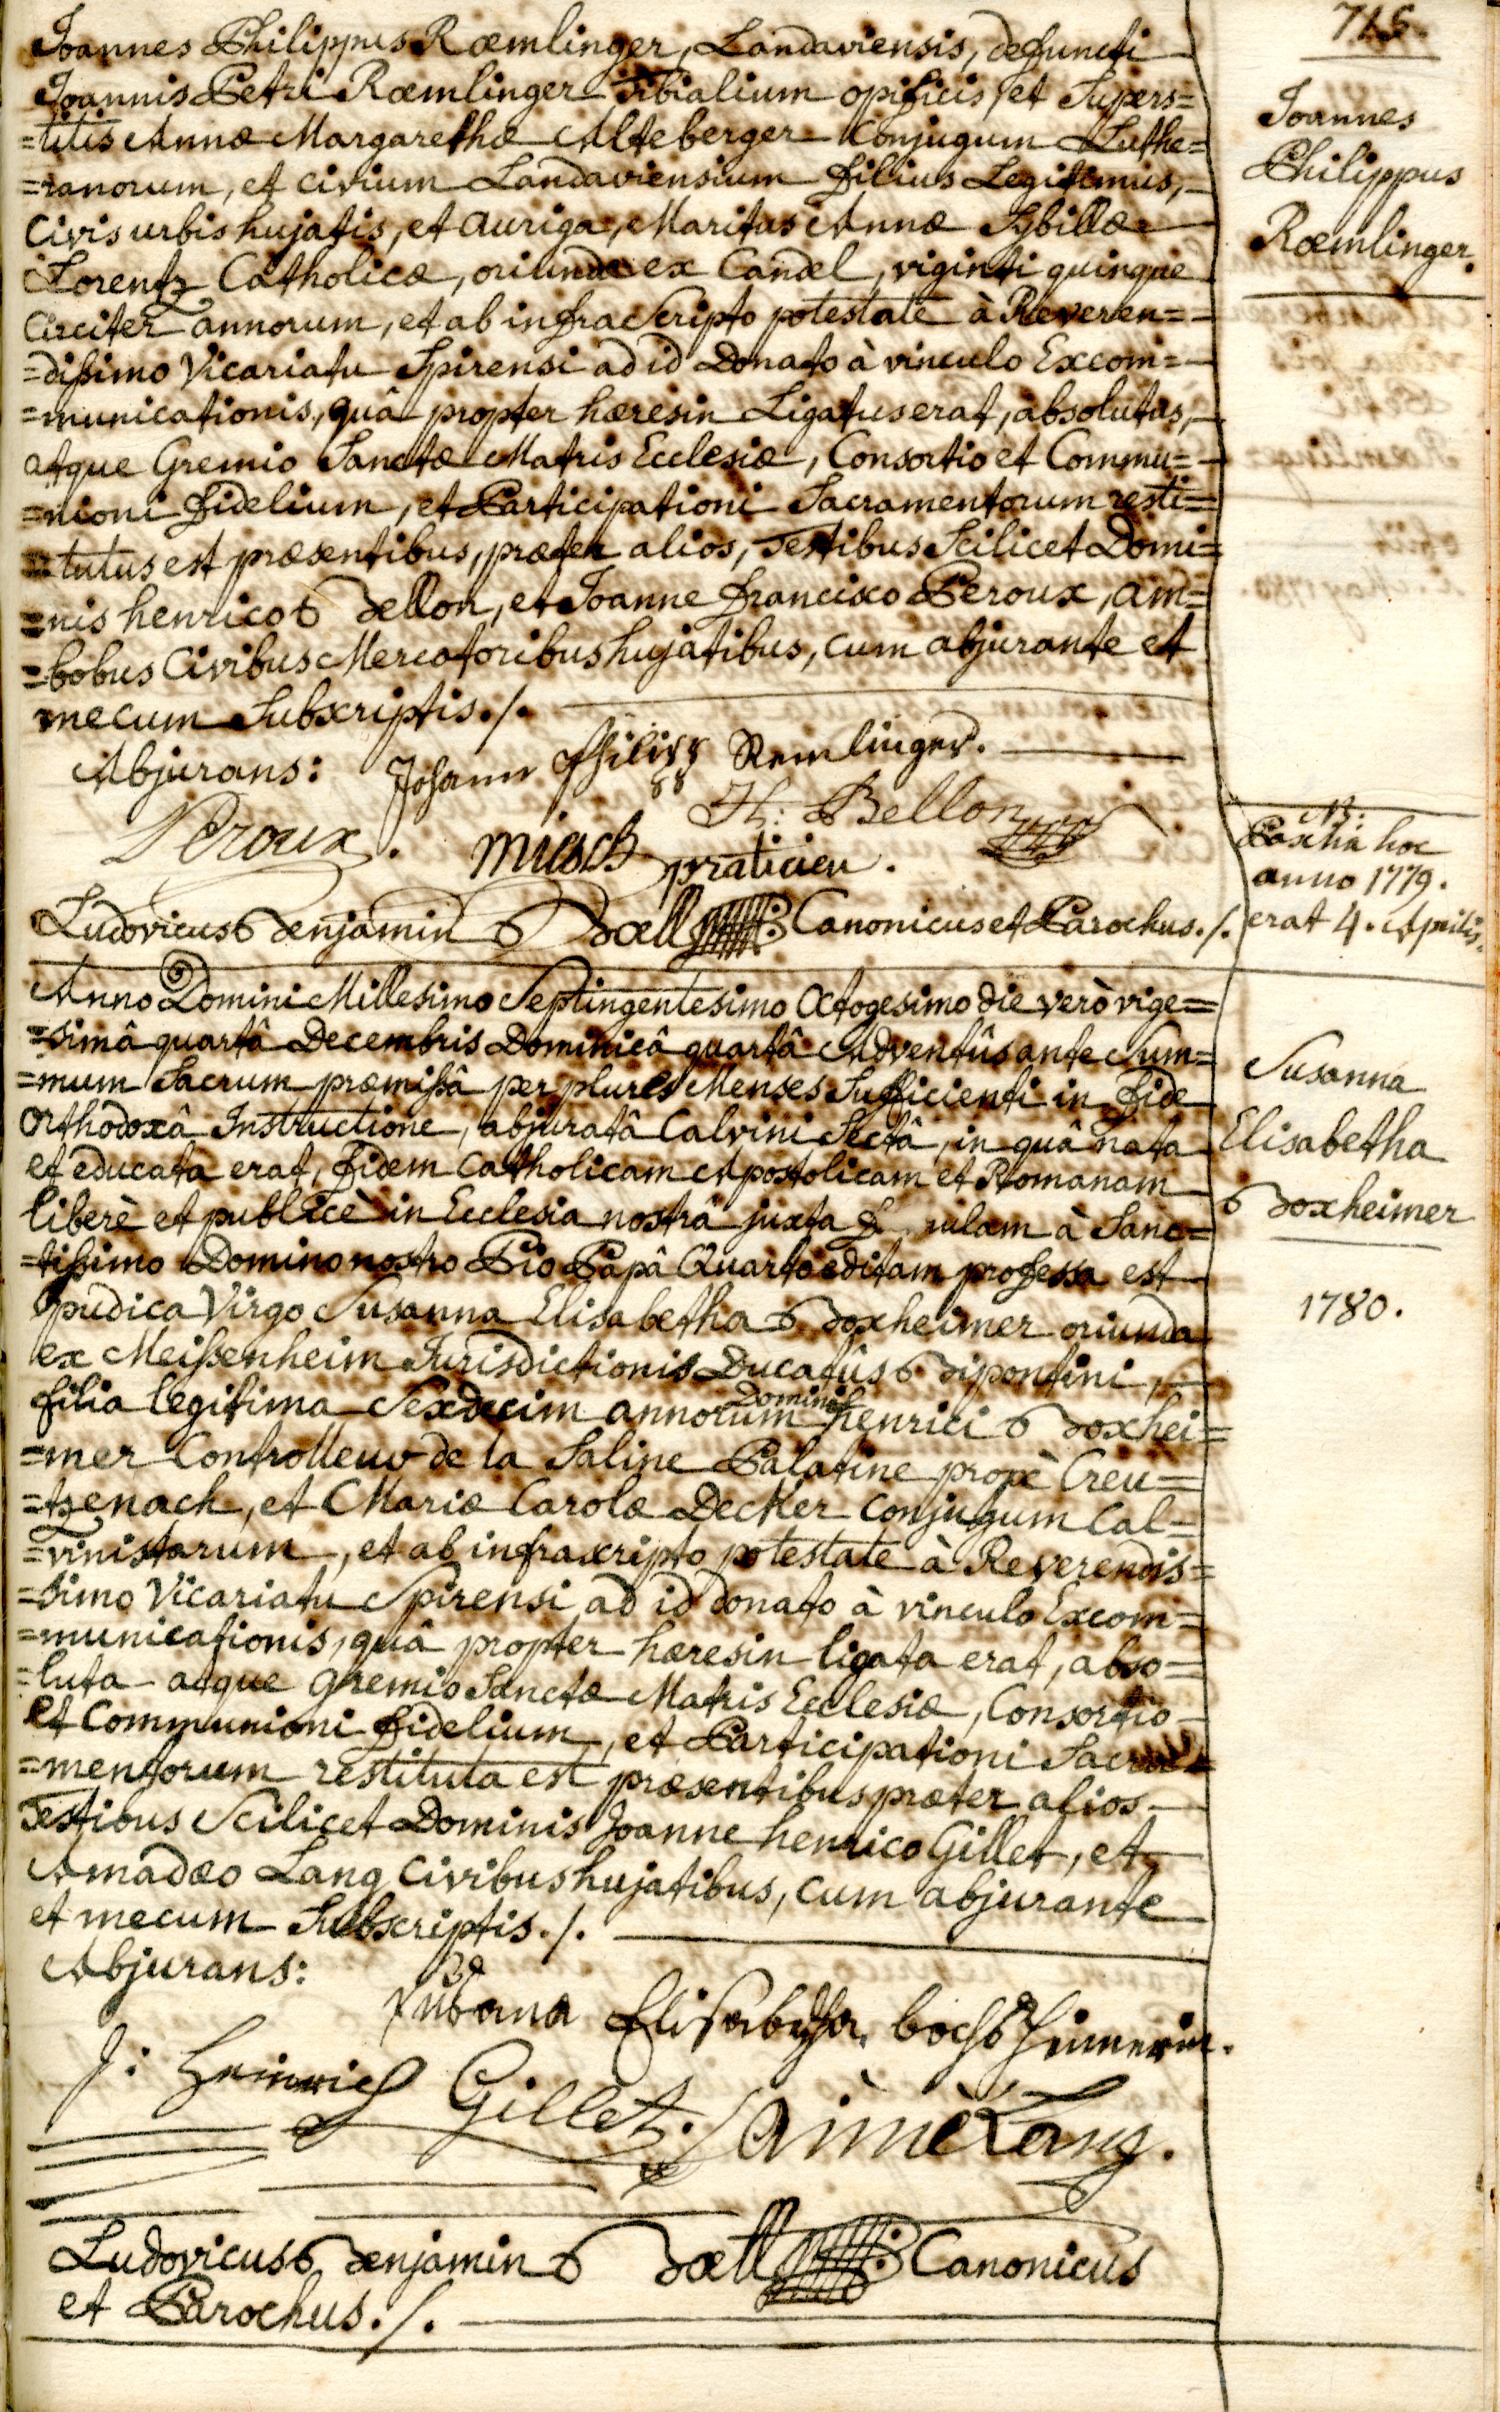 715.
Joannes Philippus Rœmlinger, Landaviensis, defuncti
Joannis Petri Rœmlinger Tibialium opificis, et Supers=
=titis Annæ Margarethæ Alteberger Conjugum Luthe=
=ranorum, et civium Landaviensium filius Legitimus,
Civis urbis hujatis, et auriga, Maritus Annæ Sybillæ
Lorentz Catholicæ, oriundæ ex Candel, viginti quinque
circiter annorum, et ab infra Scripto potestate à Reveren=
=dißimo Vicariatu Spirensi ad id Donato à vinculo Excom=
=municationis, quâ propter hæresin Ligatus erat, absolutus,
atque Gremio Sanctæ Matris Ecclesiæ, Consortio et Commu=
=nioni fidelium, et Participationi Sacramentorum resti=
=tutus est præsentibus, præter alios, Testibus Scilicet Domi=
=nis henrico Bellon, et Joanne francisco Peroux, am=
=bobus Civibus Mercatoribus hujatibus, cum abjurante et
mecum Subscriptis./.
Joannes
Philippus
Rœmlinger.
Abjurans: Johann Philipp Remlinger.
H: Bellon
Peroux. praticien.
Ludovicus Benjamin Bœll Canonicus et Parochus./.
NB.
Pascha hoc
anno 1779.
erat 4. Aprilis.
Anno Domini Millesimo Septingentesimo Octogesimo die verò vige=
=simâ quartâ Decembris Dominicâ quartâ Adventûs ante Sum=
=mum Sacrum præmißâ per plures Menses Sufficienti in fide
Orthodoxâ Instructione, abjuratâ Calvini Sectâ, in quâ nata
et educata erat, fidem Catholicam Apostolicam et Romanam
liberè et publicè in Ecclesia nostrâ juxta f ulam à Sanc=
=tißimo Domino nostro Pio Papâ Quarto editam professa est
pudica Virgo Susanna Elisabetha Boxheimer oriunda
ex Meißenheim Jurisdictionis Ducatûs Bipontini,
filia legitima Sexdecim annorum Domini henrici Boxhei=
=mer Controlleur de la Saline Palatine propè Creu=
=tzenach, et Mariæ Carolæ Decker conjugum Cal=
=vinistarum, et ab infrascripto potestate à Reverendis=
=simo Vicariatu Spirensi ad id donato à vinculo Excom=
=municationis, quâ propter hæresin ligata erat, abso=
=luta atque gremio Sanctæ Matris Ecclesiæ, Consortio
et Communioni fidelium, et Participationi Sacra=
=mentorum restituta est præsentibus præter alios
Testibus Scilicet Dominis Joanne henrico Gillet, et
Amadæo Lang Civibus hujatibus, cum abjurante
et mecum Subscriptis./.
Susanna
Elisabetha
Boxheimer
1780.
Abjurans:
Susana Elisabetha bochsheimerin.
J: Heinrich Gillet. aimè Lang.
Ludovicus Benjamin Bœll Canonicus
et Parochus./.